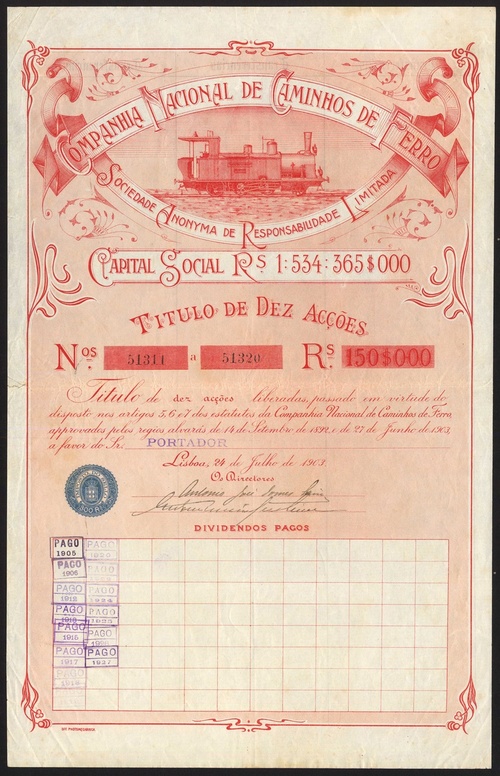 COMPANHIA NACIONAL DE CAMINHOS DE FERRO
SOCIEDADE ANONYMA DE RESPONSABILIDADE LIMITADA
CAPITAL SOCIAL RS 1:534:365$000
TITULO DE DEZ ACÇÕES
Nos. 51311 a 51320 RS. 150$000
Titulo de dez acções liberadas, passado em virtude do
disposto nos artigos 5, 6 e 7 dos estatutos da Companhia Nacional de Caminhos de Ferro,
approvados pelos regios alvarás de 14 de Setembro de 1899, e de 27 de Junho de 1903,
a favor do Sr. PORTADOR
Lisboa, 24 de Julho de 1903.
Os Directores
Antonio José Gomes
DIVIDENDOS PAGOS
PAGO PAGO
1905
PAGO
1906
PAGO
1912 1924
PAGO PAGO
PAGO PAGO
1915
PAGO PAGO
1917 1927